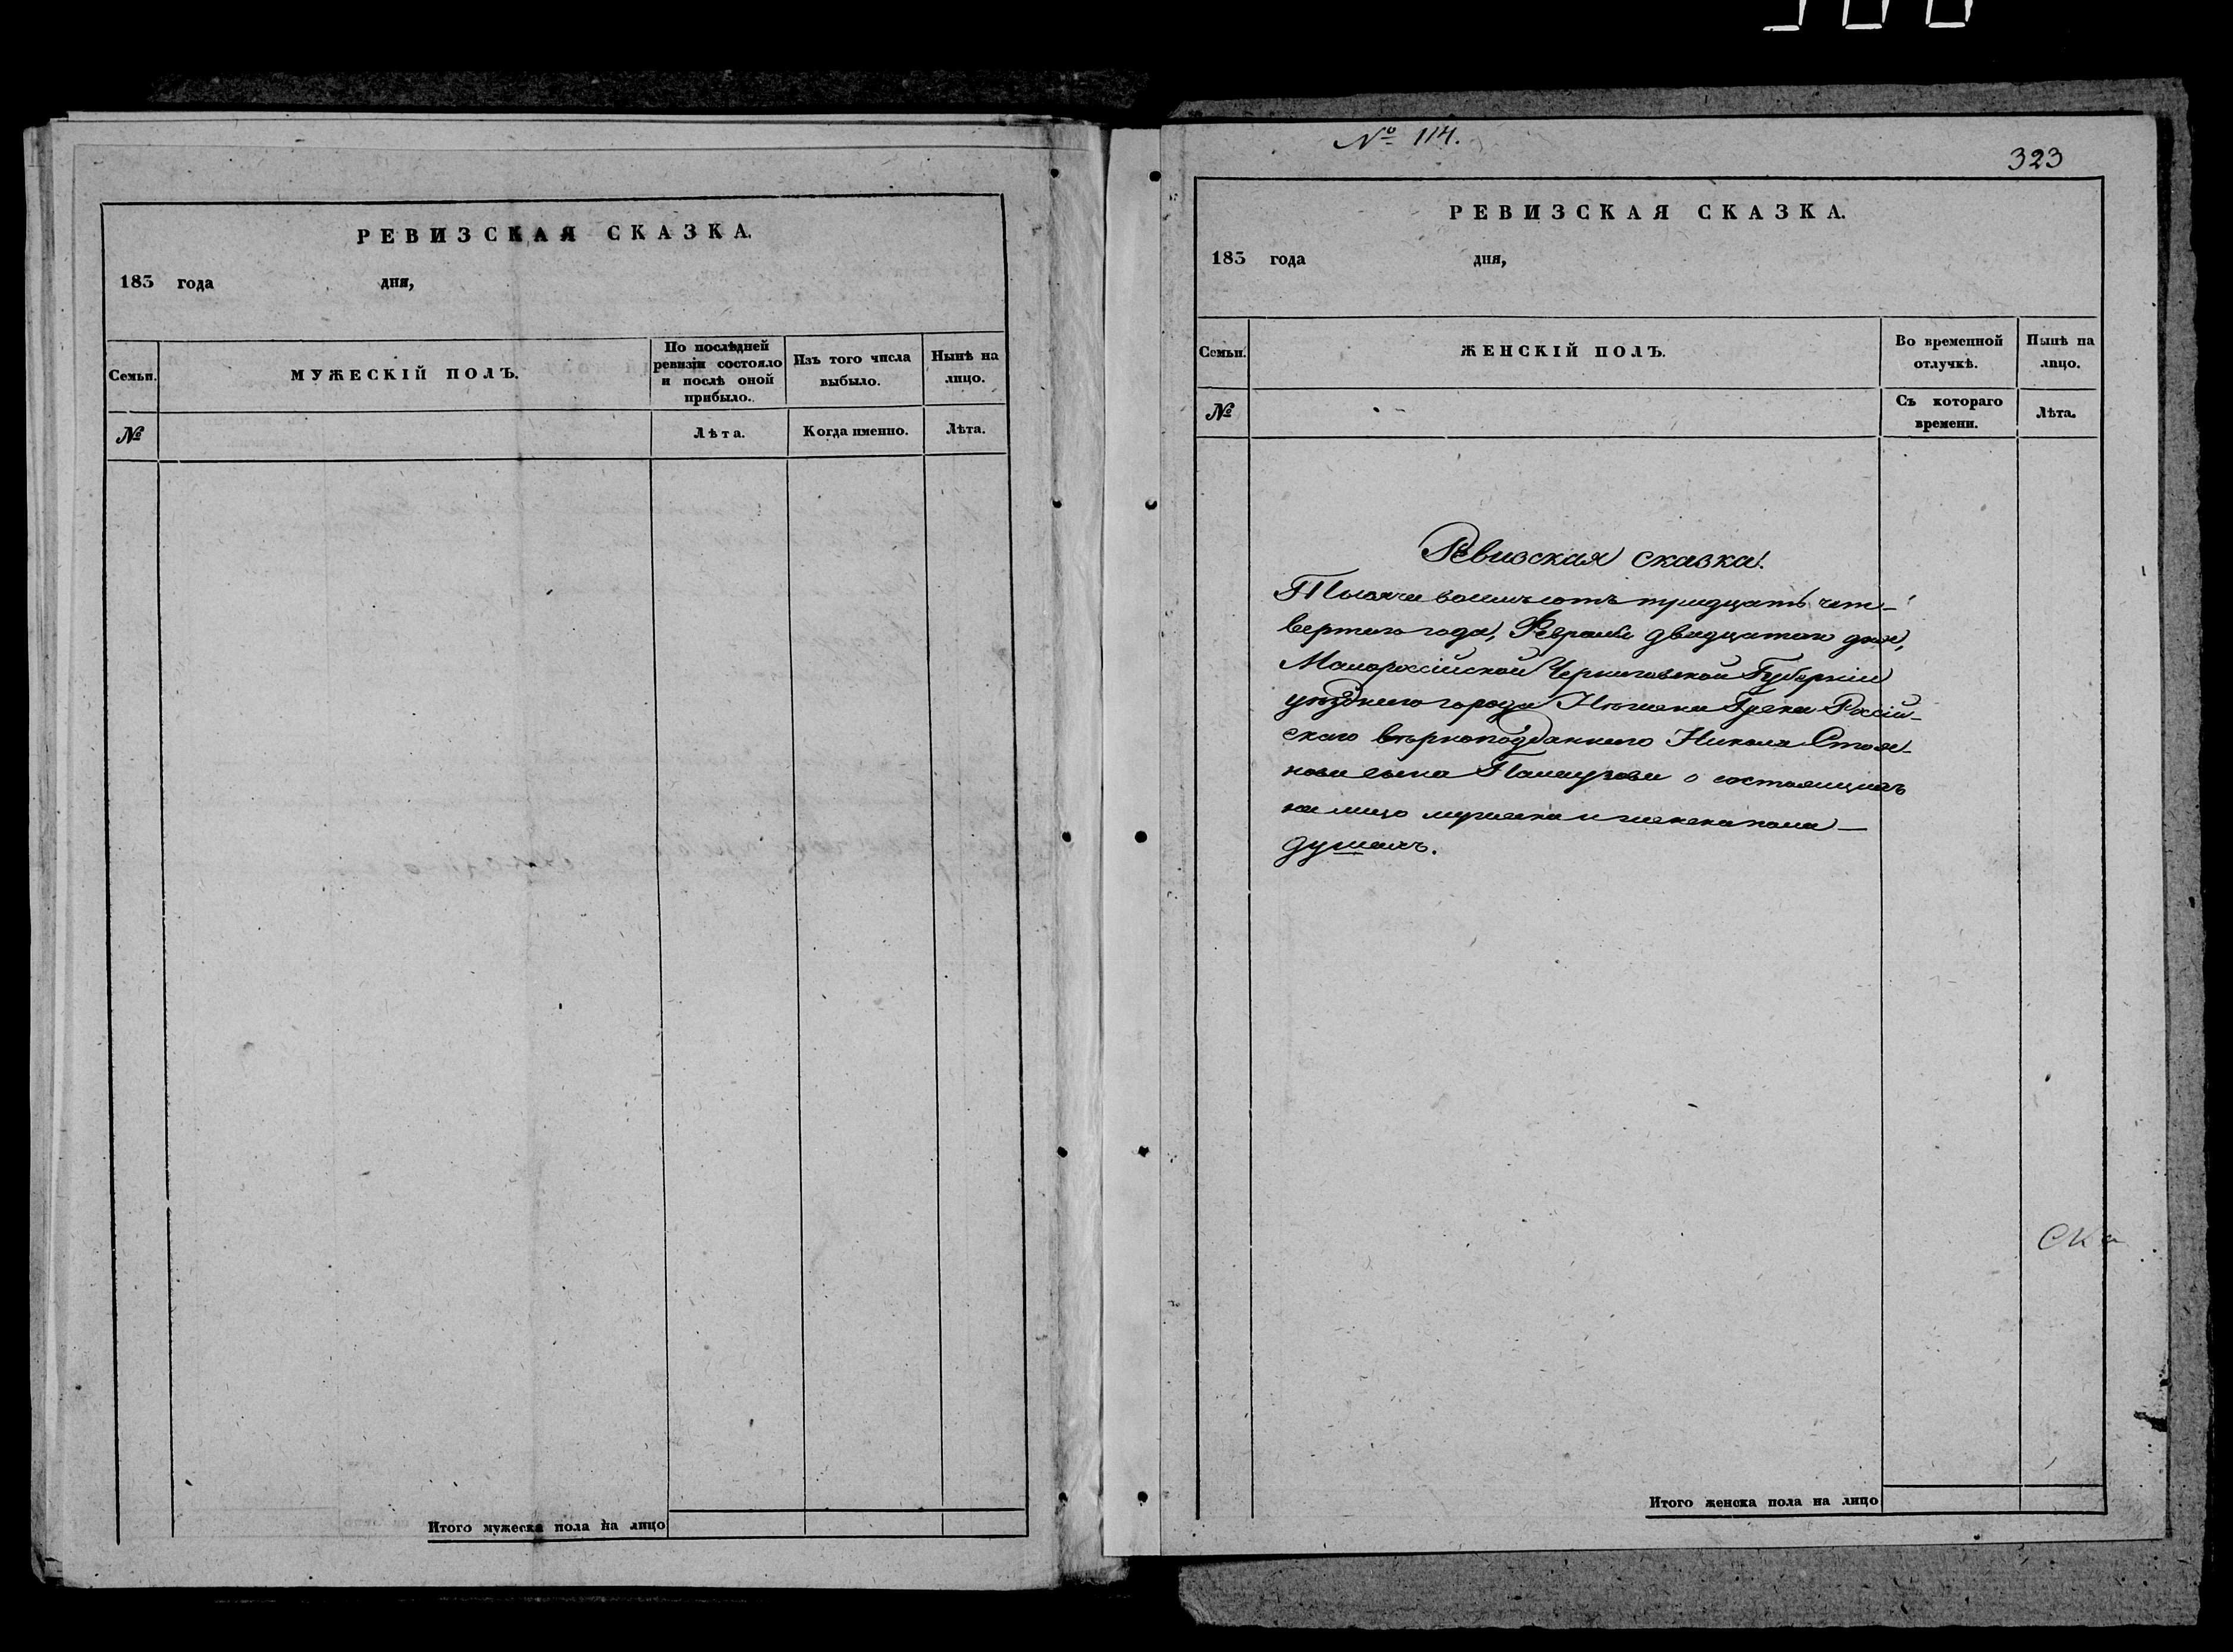 РЕВИЗСКАЯ СКАЗКА.
183 года дня,
Семьи.
МУЖЕСКІЙ ПОЛЪ.
По послѣдней
ревизіи состояло
и послѣ оной
прибыло.
Изъ того числа
выбыло.
Нынѣ на
лицо.
№
Лѣта.
Когда именно.
Лѣта.
Итого мужеска пола на лицо
№ 114.
323
РЕВИЗСКАЯ СКАЗКА.
183 года дня,
Семьи.
ЖЕНСКІЙ ПОЛЪ.
Во временной
отлучкѣ.
Нынѣ на
лицо.
№
Съ котораго
времени.
Лѣта.
Ревизская сказка.
Тысяча восемьсотъ тридцать чет-
вертаго года, Февраля двадцатаго дня,
Малороссійской Черниговской Губерніи
уѣзднаго города Нѣжина Грека Россій-
скаго вѣрноподданнаго Николая Стоя-
нова сына о состоящихъ
на лицо мужеска и женска пола
душахъ.
Итого женска пола на лицо